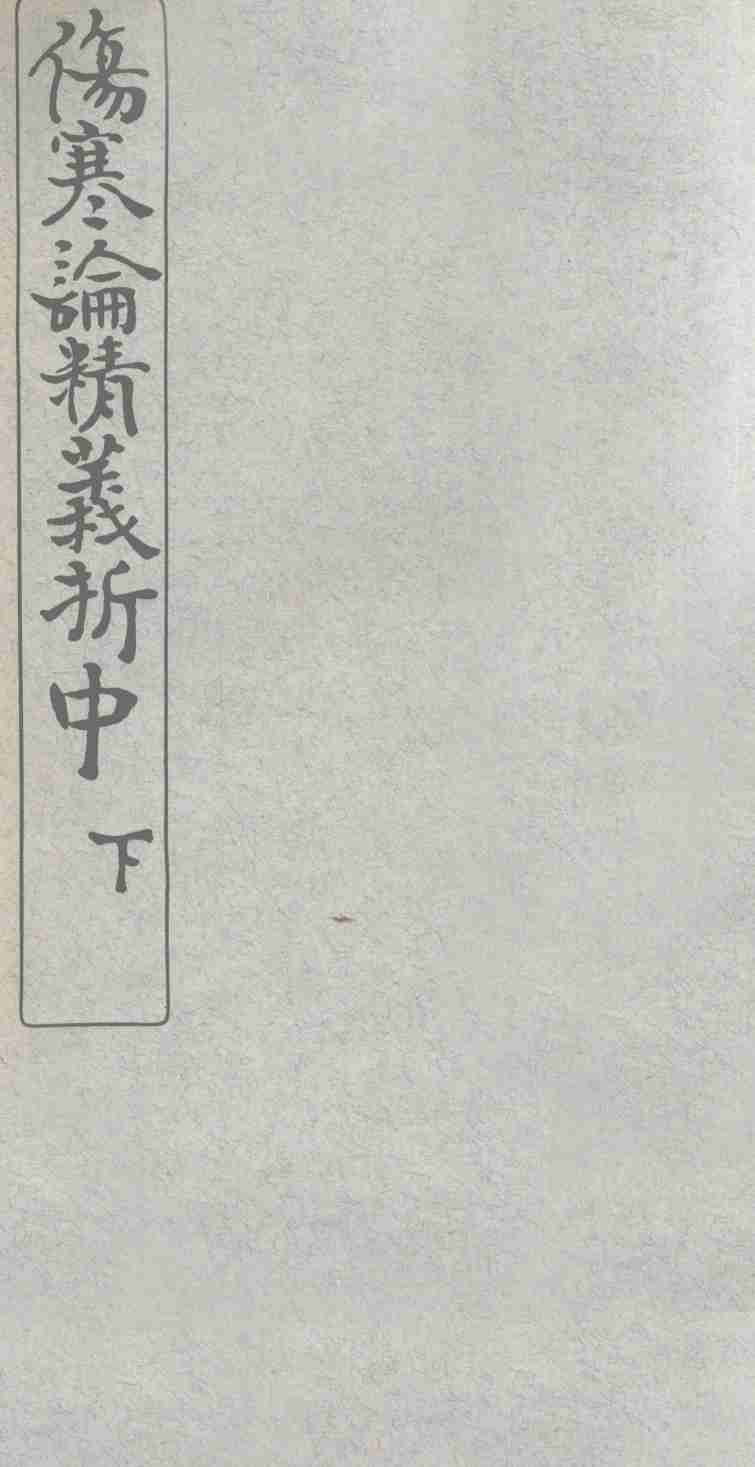 傷寒論精義折中 下